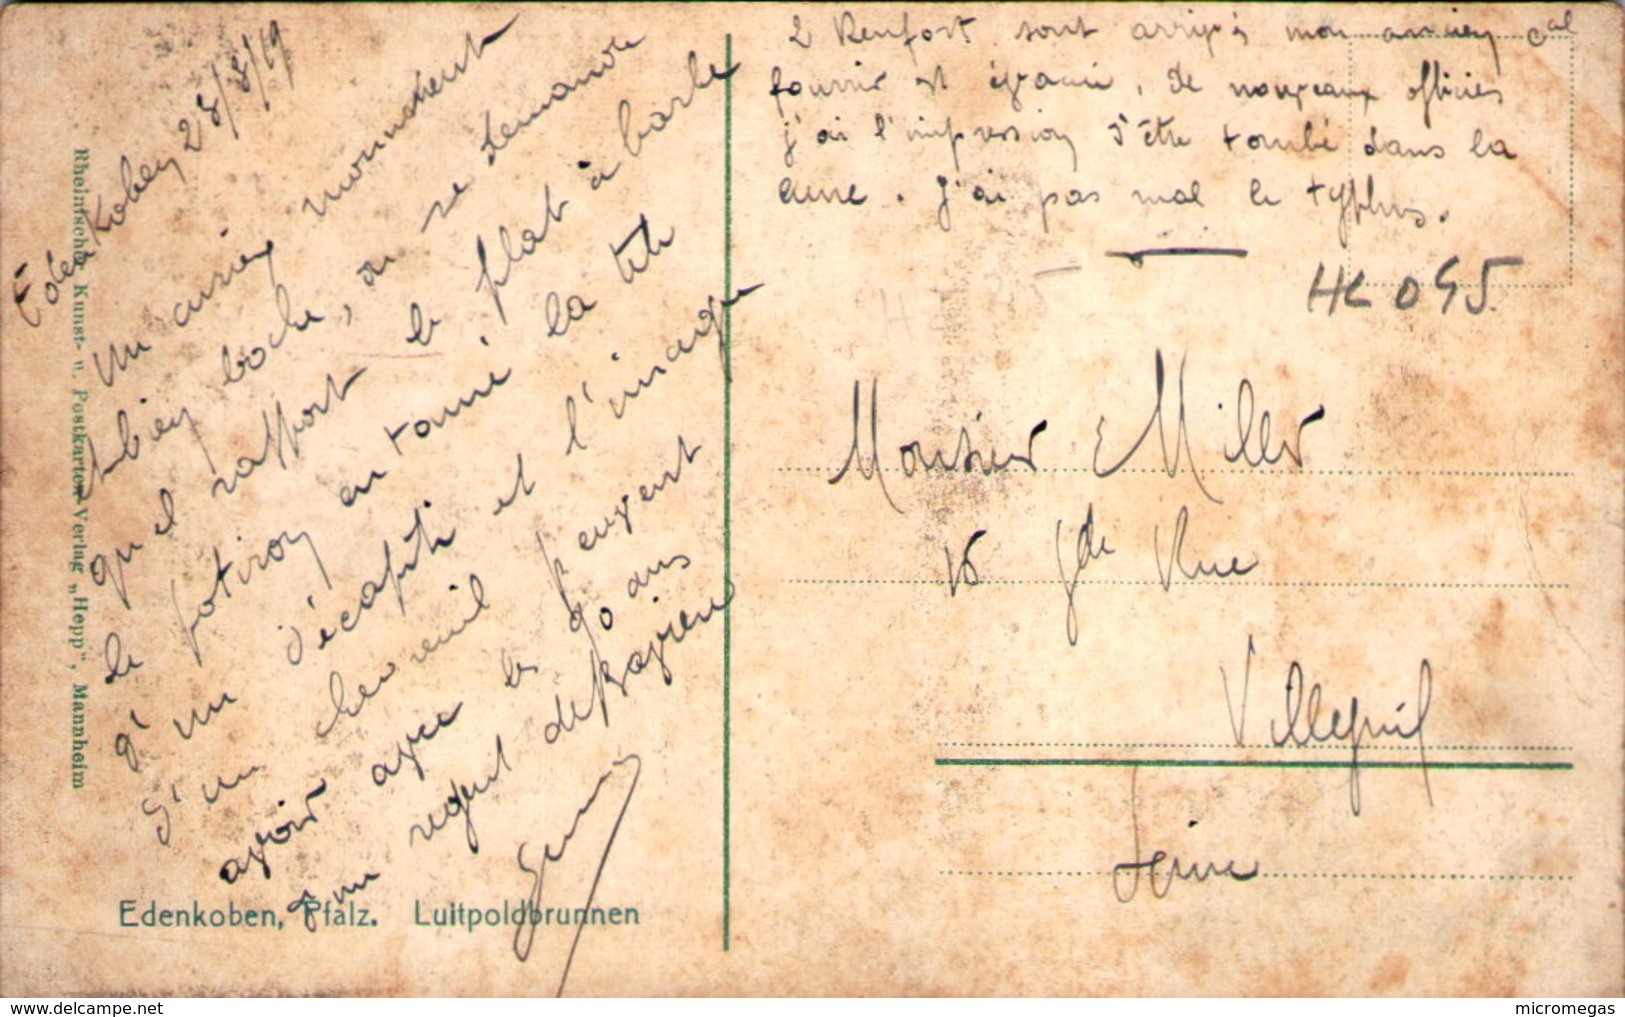 Édenkoben 28/8/19
Un ancien monument
bien boche, on se demande
quel rapport le plat à barbe
le potiron en tomé la tête
d'un décapité et l'image
d'un chevreuil peuvent
avoir avec les 90 ans
d'un régent de Bavière
2 Renfort sont arrivés mon ancien cal
fourrier est évacué, de nouveaux officiers
j'ai l'impression d'être tombé dans la
cuve. J'ai pas mal le typhus.
HL 045
Monsieur E Miller
16 Gde Rue
Villejuif
Seine
Rheinische Kunst- u. Postkarten-Verlag „Hepp“, Mannheim
Edenkoben, Pfalz. Luitpoldbrunnen
micromegas